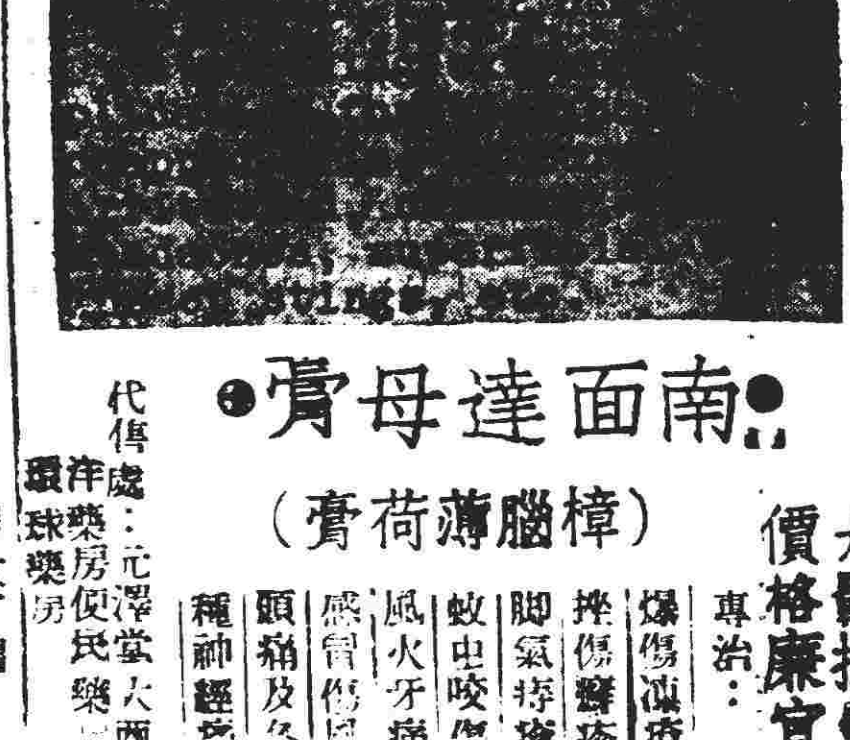 南面達母膏
(樟腦薄荷膏)
價格廉宜
專治：
爆傷凍瘡
挫傷癬疥
脚氣痔瘡
蚊虫咬傷
風火牙痛
感冒傷風
頭痛及各
種神經痛
代售處：元澤堂大西
洋藥房便民藥
環球藥房